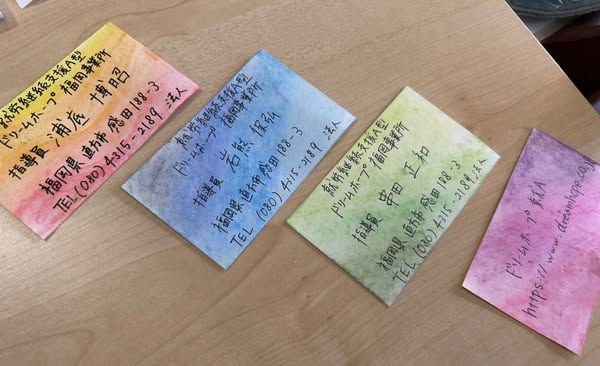 就労継続支援A型
ドリームホープ 福岡事業所
指導員 浦底 博昭
福岡県直方市感田188-3
TEL (080) 4315-2189 法人
就労継続支援A型
ドリームホープ 福岡事業所
指導員 岩熊 保弘
福岡県直方市感田188-3
TEL (080) 4315-2189 法人
就労継続支援A型
ドリームホープ 福岡事業所
指導員 串田 正和
福岡県直方市感田188-3
TEL (080) 4315-2189 法人
ドリームホープ 就A
https://www.dreamhope.co.jp